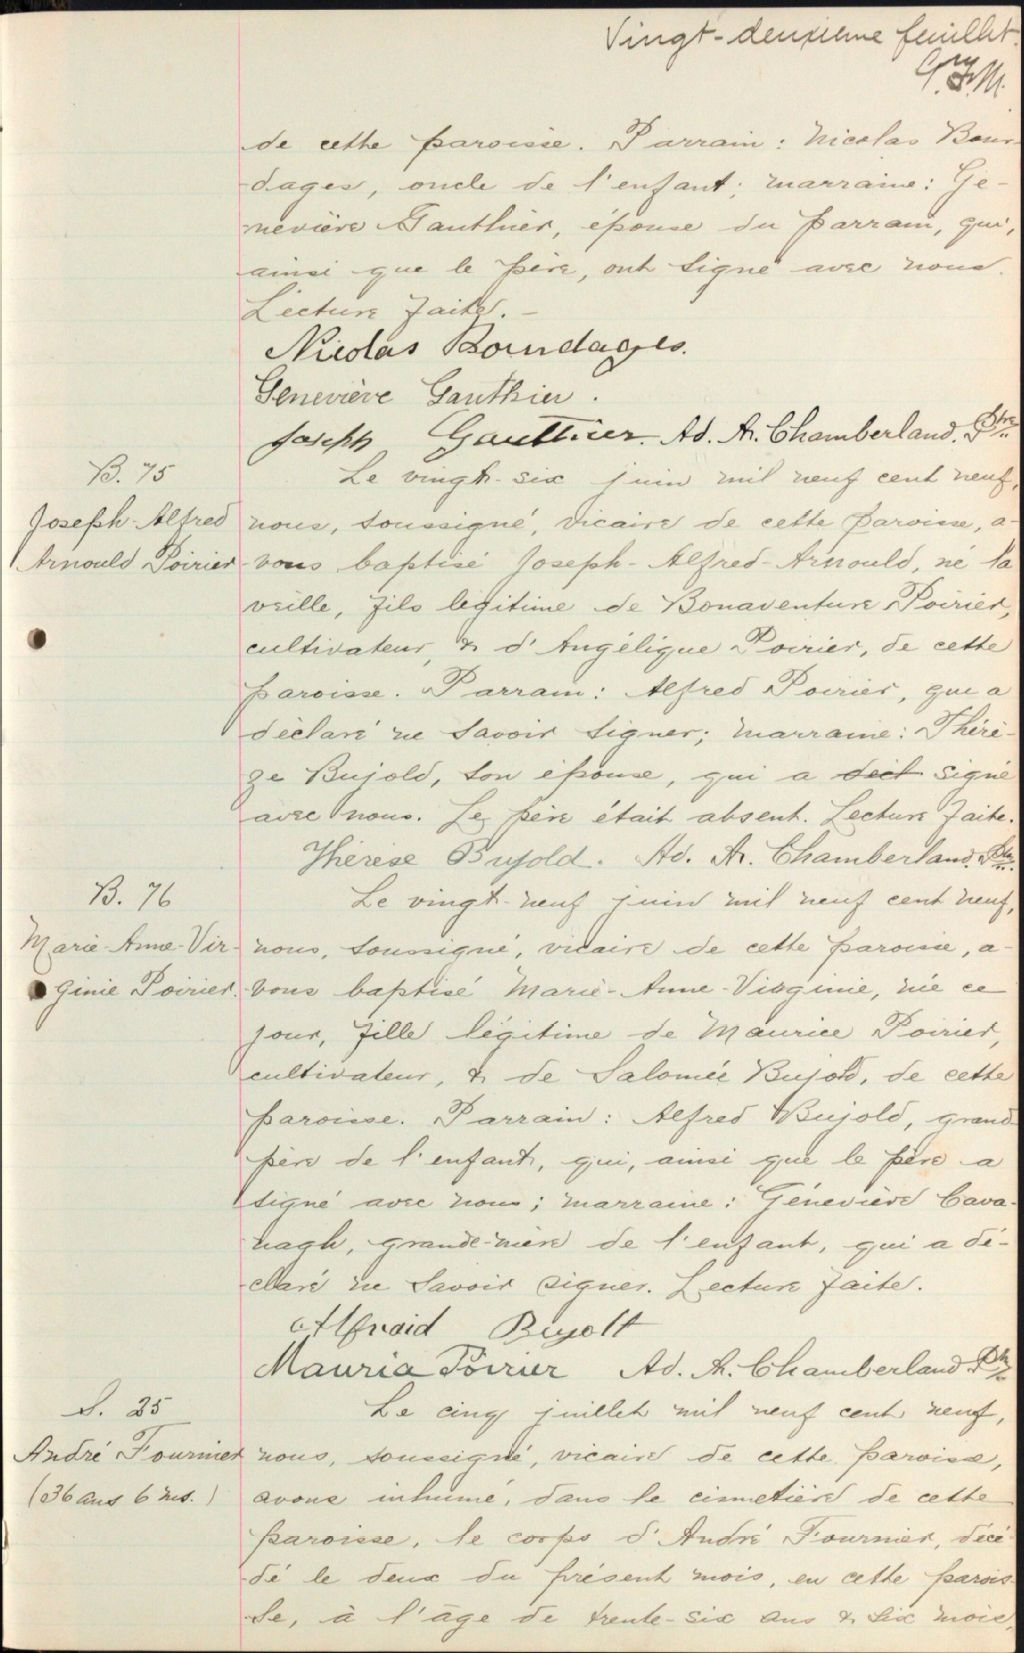 Vingt-deuxième feuillet.
G. J. M.
de cette paroisse. Parrain : Nicolas Bour-
dages, oncle de l'enfant ; marraine : Ge-
neviève Gauthier, épouse du parrain, qui,
ainsi que le père, ont signé avec nous.
Lecture faite. -
Nicolas Bourdages.
Geneviève Gauthier.
Joseph Gauthier. Ad. A. Chamberland. Ptre
B. 75
Le vingt-six juin mil neuf cent neuf,
Joseph-Alfred
nous, soussigné, vicaire de cette paroisse, a-
Arnould Poirier
vons baptisé Joseph-Alfred-Arnould, né la
veille, fils légitime de Bonaventure Poirier,
cultivateur, & d'Angélique Poirier, de cette
paroisse. Parrain : Alfred Poirier, qui a
déclaré ne savoir signer ; marraine : Thérè-
ze Bujold, son épouse, qui a signé
avec nous. Le père était absent. Lecture faite.
Thérèse Bujold. Ad. A. Chamberland. Ptre
B. 76
Le vingt-neuf juin mil neuf cent neuf,
Marie-Anne-Vir-
nous, soussigné, vicaire de cette paroisse, a-
ginie Poirier.
vons baptisé Marie-Anne-Virginie, née ce
jour, fille légitime de Maurice Poirier,
cultivateur, & de Salomée Bujold, de cette
paroisse. Parrain : Alfred Bujold, grand-
père de l'enfant, qui, ainsi que le père a
signé avec nous ; marraine : Géneviève Cava-
nagh, grande-mère de l'enfant, qui a dé-
claré ne savoir signer. Lecture faite.
Alfraid Bujolt
Mauria Poirier Ad. A. Chamberland Ptre
S. 25
Le cinq juillet mil neuf cent neuf,
André Fournier
nous, soussigné, vicaire de cette paroisse,
(36 ans 6 ms.)
avons inhumé, dans le cimetière de cette
paroisse, le corps d'André Fournier, décé-
dé le deux du présent mois, en cette parois-
se, à l'âge de trente-six ans & six mois,